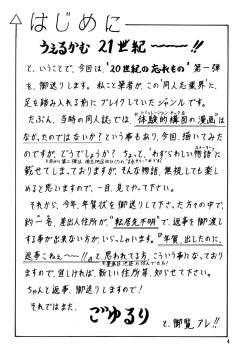 はじめに
うぇるかむ 21世紀 〜〜〜!!
と、いうことで、今回は、"20世紀の忘れもの"第一弾
を、御送りします。私こと筆者が、この"同人志業界"に、
足を踏み入れる前に ブレイクしていたジャンルです。
たぶん、当時の同人誌では、"体験的構図の漫画"は
なかったのではないか?という事もあり、今回、描いてみた
のですが、どうでしょうか? ちょっと、"わずらわしい物語"に
載せてしまっておりますが、そんな物語、無視しても楽し
めると思いますので、一目、見てやって下さい。
それから、今年、年賀状を御送りして下さった方々の中で、
約一名、差出人住所が、"転居先不明"で、返事を御渡し
する事が出来ない方が、いらっしゃいます。"年賀、出したのに、
返事こねぇ〜〜!!"と、思われてる方、こういう事に、なっており
ますので、宜しければ、新しい住所等、知らせて下さい。
ちゃんと返事、御送りしますので!
それではまた、
ごゆるり
と、御覧アレ!!
4